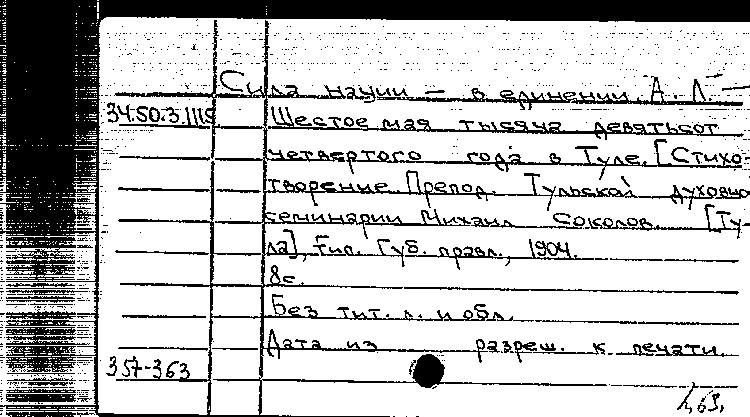 Сила нации — в единении. А. Л. —
34.50.3.1119 Шестое мая тысяча девятьсот
четвертого года в Туле. [Стихо-
творение Препод. Тульской духовно
семинарии Михаил Соколов. [Ту-
ла], тип. Губ. правл., 1904.
8с.
Без тит. л. и обл.
Дата из разреш. к печати.
357-363